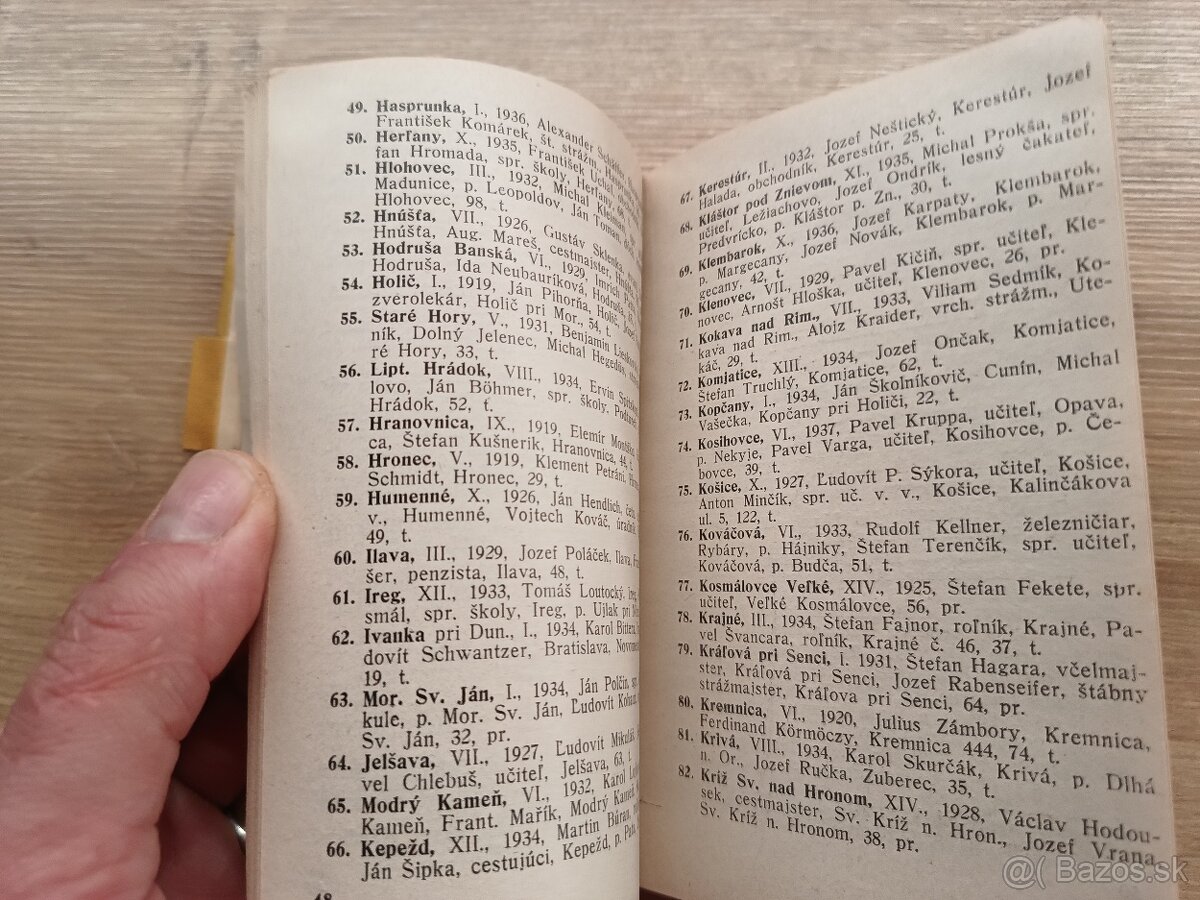 49. Hasprunka, I., 1936, Alexander
František Komárek, št. strážm.
50. Herľany, X., 1935, František
fan Hromada, spr. školy, Herľany, 66,
51. Hlohovec, III., 1932, Michal Kleiman
Madunice, p. Leopoldov, Ján Toman,
Hlohovec, 98, t.
52. Hnúšťa, VII., 1926, Gustáv Sklenka,
Hnúšťa, Aug. Mareš, cestmajster,
53. Hodruša Banská, VI., 1929, Imrich
Hodruša, Ida Neubauríková, Hodruša,
54. Holič, I., 1919, Ján Pihorňa, Holič,
zverolekár, Holič pri Mor., 54, t.
55. Staré Hory, V., 1931, Benjamin
ník, Dolný Jelenec, Michal Hegedüs,
ré Hory, 33, t.
56. Lipt. Hrádok, VIII., 1934, Ervin
lovo, Ján Böhmer, spr. školy,
Hrádok, 52, t.
57. Hranovnica, IX., 1919, Elemír
ca, Štefan Kušnerik, Hranovnica, 44, t.
58. Hronec, V., 1919, Klement Petráni,
Schmidt, Hronec, 29, t.
59. Humenné, X., 1926, Ján Hendlich,
v., Humenné, Vojtech Kováč,
49, t.
60. Ilava, III., 1929, Jozef Poláček, Ilava,
šer, penzista, Ilava, 48, t.
61. Ireg, XII., 1933, Tomáš Loutocký,
smál, spr. školy, Ireg, p. Ujlak pri
62. Ivanka pri Dun., I., 1934, Karol
dovít Schwantzer, Bratislava,
19, t.
63. Mor. Sv. Ján, I., 1934, Ján Polčin,
kule, p. Mor. Sv. Ján, Ľudovít
Sv. Ján, 32, pr.
64. Jelšava, VII., 1927, Ľudovít
vel Chlebuš, učiteľ, Jelšava, 63,
65. Modrý Kameň, VI., 1932, Karol
Kameň, Frant. Mařík, Modrý Kameň,
66. Kepežd, XII., 1934, Martin Búran,
Ján Šipka, cestujúci, Kepežd, p.
48
67. Kerestúr, II., 1932, Jozef Neštický, Kerestúr, Jozef
Halada, obchodník, Kerestúr, 25, t.
68. Kláštor pod Znievom, XI., 1935, Michal Prokša, spr.
učiteľ, Ležiachovo, Jozef Ondrík, lesný čakateľ,
Predvrícko, p. Kláštor p. Zn., 30, t.
69. Klembarok, X., 1936, Jozef Karpaty, Klembarok,
p. Margecany, Jozef Novák, Klembarok, p. Mar-
gecany, 42, t.
70. Klenovec, VII., 1929, Pavel Kičiň, spr. učiteľ, Kle-
novec, Arnošt Hloška, učiteľ, Klenovec, 26, pr.
71. Kokava nad Rim., VII., 1933, Viliam Sedmík, Ko-
kava nad Rim., Alojz Kraider, vrch. strážm., Ute-
káč, 29, t.
72. Komjatice, XIII., 1934, Jozef Ončak, Komjatice,
Štefan Truchlý, Komjatice, 62, t.
73. Kopčany, I., 1934, Ján Školníkovič, Cunín, Michal
Vašečka, Kopčany pri Holiči, 22, t.
74. Kosihovce, VI., 1937, Pavel Kruppa, učiteľ, Opava,
p. Nekyje, Pavel Varga, učiteľ, Kosihovce, p. Če-
bovce, 39, t.
75. Košice, X., 1927, Ľudovít P. Sýkora, učiteľ, Košice,
Anton Minčík, spr. uč. v. v., Košice, Kalinčákova
ul. 5, 122, t.
76. Kováčová, VI., 1933, Rudolf Kellner, železničiar,
Rybáry, p. Hájniky, Štefan Terenčík, spr. učiteľ,
Kováčová, p. Budča, 51, t.
77. Kosmálovce Veľké, XIV., 1925, Štefan Fekete, spr.
učiteľ, Veľké Kosmálovce, 56, pr.
78. Krajné, III., 1934, Štefan Fajnor, roľník, Krajné, Pa-
vel Švancara, roľník, Krajné č. 46, 37, t.
79. Kráľová pri Senci, I. 1931, Štefan Hagara, včelmaj-
ster, Kráľová pri Senci, Jozef Rabenseifer, štábny
strážmajster, Kráľova pri Senci, 64, pr.
80. Kremnica, VI., 1920, Julius Zámbory, Kremnica,
Ferdinand Körmöczy, Kremnica 444, 74, t.
81. Krivá, VIII., 1934, Karol Skurčák, Krivá, p. Dlhá
n. Or., Jozef Ručka, Zuberec, 35, t.
82. Kríž Sv. nad Hronom, XIV., 1928, Václav Hodou-
sek, cestmajster, Sv. Kríž n. Hron., Jozef Vrana,
Sv. Kríž n. Hronom, 38, pr.
Bazos.sk